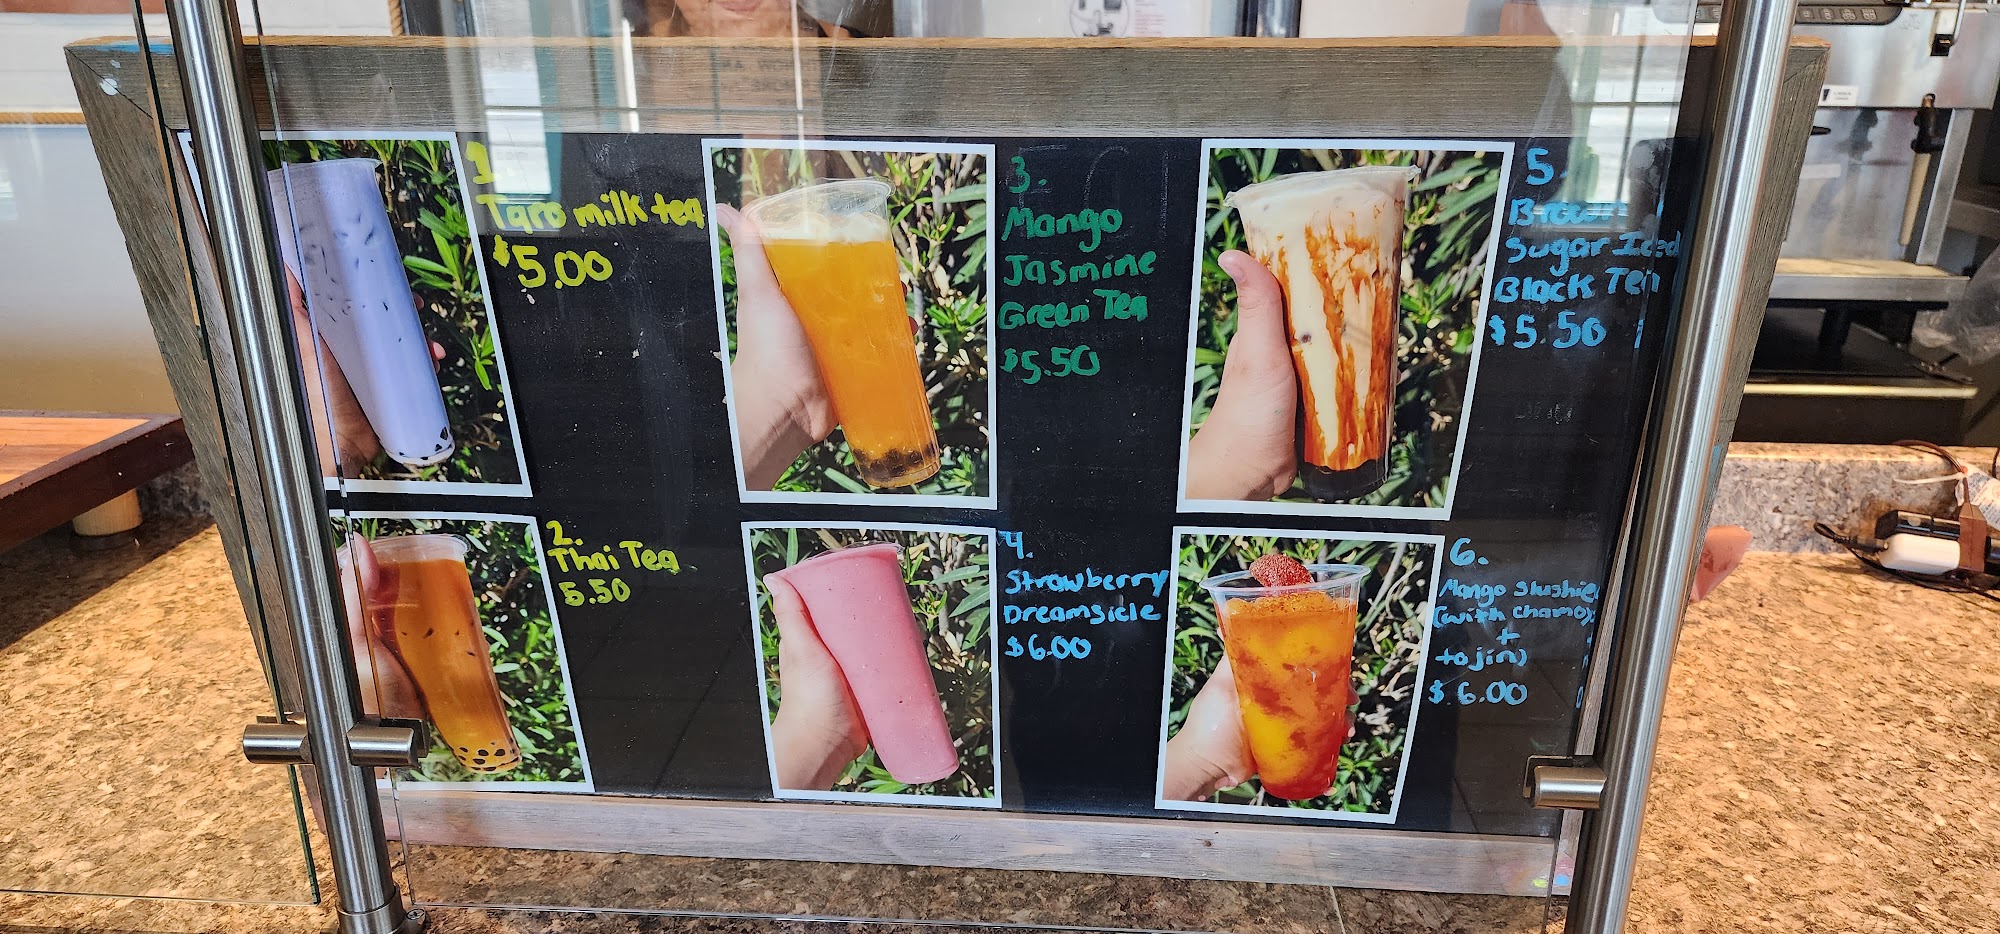 1
Taro milk tea
$5.00
2.
Thai Tea
5.50
3.
Mango
Jasmine
Green Tea
$5.50
4.
Strawberry
Dreamsicle
$6.00
5.
Brown
Sugar Iced
Black Tea
$5.50
6.
Mango Slushie
(with chamoy
+
tajin)
$6.00